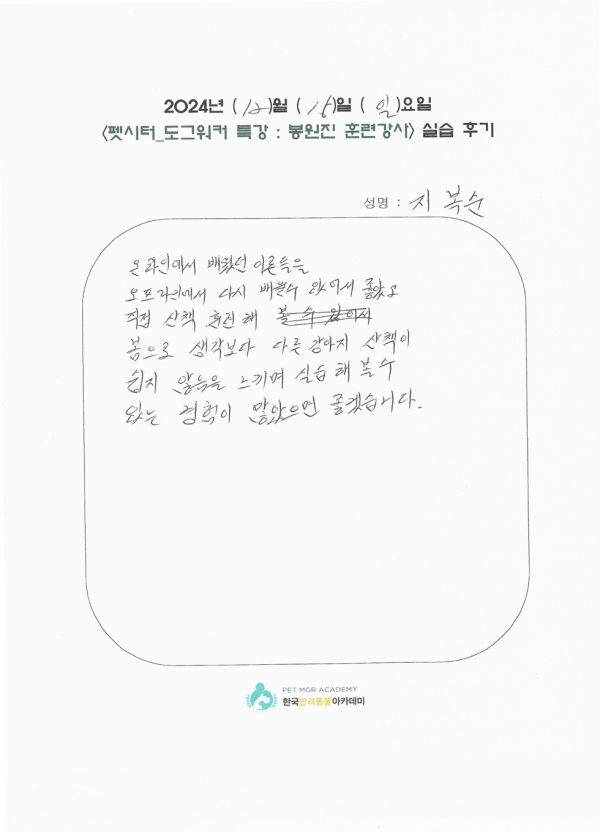 2024년 (12)월 (15)일 (일)요일
<펫시터_도그워커 특강 : 봉원진 훈련강사> 실습 후기
성명 : 지복순
온라인에서 배웠던 이론들을
오프라인에서 다시 배울수 있어서 좋았고
직접 산책 훈련 해 볼 수 있어서
봄으로 생각보다 다른 강아지 산책이
쉽지 않음을 느끼며 실습 해 볼 수
있는 경험이 많았으면 좋겠습니다.
PET MGR ACADEMY
한국반려동물아카데미